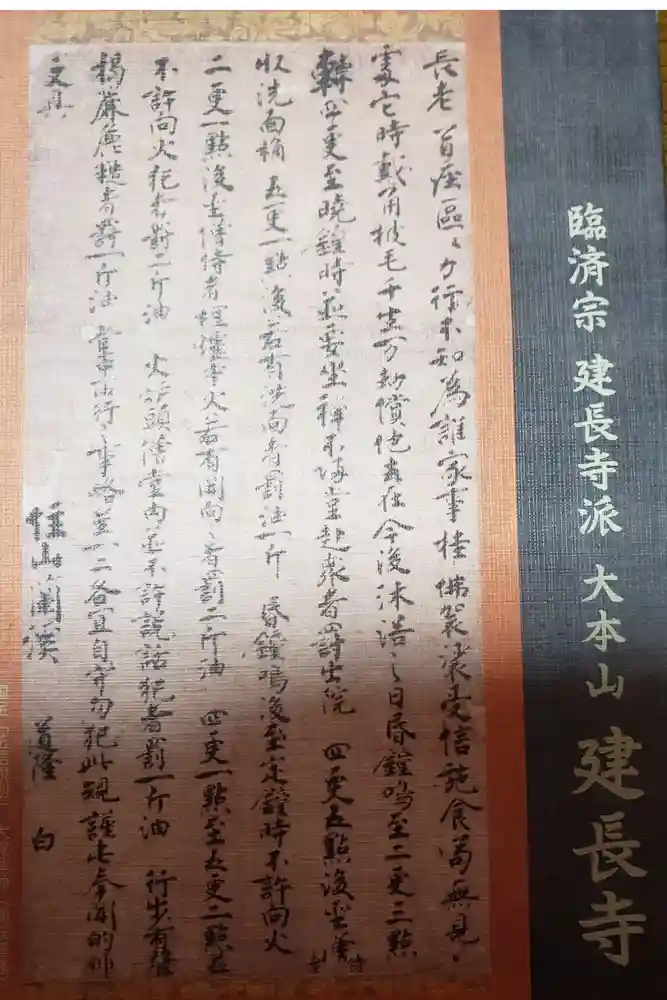 臨済宗 建長寺派 大本山 建長寺
長老首座區々力行不知為誰家事掛佛袈裟受信施食苟無見
處它時戴角披毛千生万劫償他去在今後沐浴之日昏鐘鳴至二更三點
轉四更至曉鐘時並要坐禪不歸堂赴衆者罰出院 四更五點後聖僧侍者
收洗面桶 五更一點後若有洗面者罰油一斤 昏鐘鳴後至定鐘時不許向火
二更一點後聖僧侍者埋爐中火若有開向之者罰二斤油 四更一點至五更二點並
不許向火犯者罰二斤油 火爐頭僧堂内並不許說話犯者罰一斤油 行步有聲
揭簾麁糙者罰一斤油 堂中所行之事略呈一二各宜自守勿犯此規謹此奉聞的非
文具
住山蘭溪 道隆 白